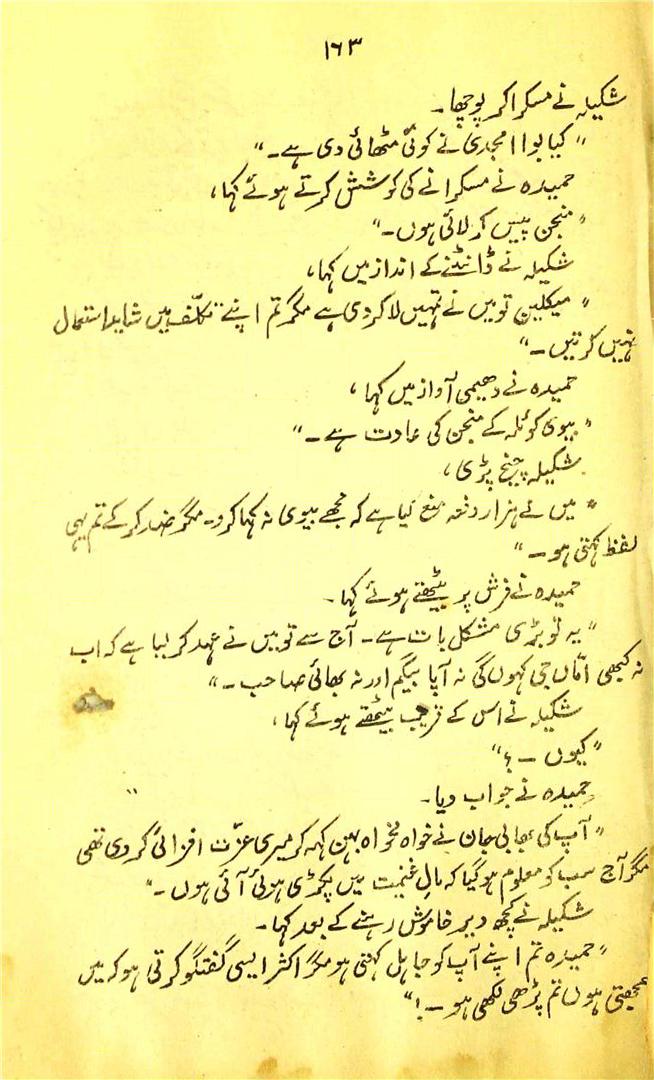 ۱۶۳
شکیلہ نے مسکرا کر پوچھا۔
"کیا بوا امجدی نے کوئی مٹھائی دی ہے۔"
حمیدہ نے مسکرانے کی کوشش کرتے ہوئے کہا،
"منجن پیس کر لائی ہوں۔"
شکیلہ نے ڈانٹنے کے انداز میں کہا،
"میکلین تو میں نے تمہیں لا کر دی ہے مگر تم اپنے تکلّف میں شاید استمال
نہیں کرتیں۔"
حمیدہ نے دھیمی آواز میں کہا،
"بیوی کوئلہ کے منجن کی عادت ہے۔"
شکیلہ چیخ پڑی،
"میں نے ہزار دفعہ منع کیا ہے کہ مجھے بیوی نہ کہا کرو۔ مگر ضد کر کے تم یہی
لفظ کہتی ہو۔"
حمیدہ نے فرش پر بیٹھتے ہوئے کہا۔
"یہ تو بڑی مشکل بات ہے۔ آج سے تو میں نے عہد کر لیا ہے کہ اب
نہ کبھی امّاں جی کہوں گی نہ آپا بیگم اور نہ بھائی صاحب۔"
شکیلہ نے اس کے قریب بیٹھتے ہوئے کہا،
"کیوں۔؟"
حمیدہ نے جواب دیا۔
"آپ کی بھابی جان نے خواہ مخواہ بہن کہہ کر میری عزّت افزائی کر دی تھی
مگر آج سب کو معلوم ہو گیا کہ مالِ غنیمت میں پکڑی ہوئی آئی ہوں۔"
شکیلہ نے کچھ دیر خاموش رہنے کے بعد کہا۔
"حمیدہ تم اپنے آپ کو جاہل کہتی ہو مگر اکثر ایسی گفتگو کرتی ہو کہ میں
سمجھتی ہوں تم پڑھی لکھی ہو۔!"